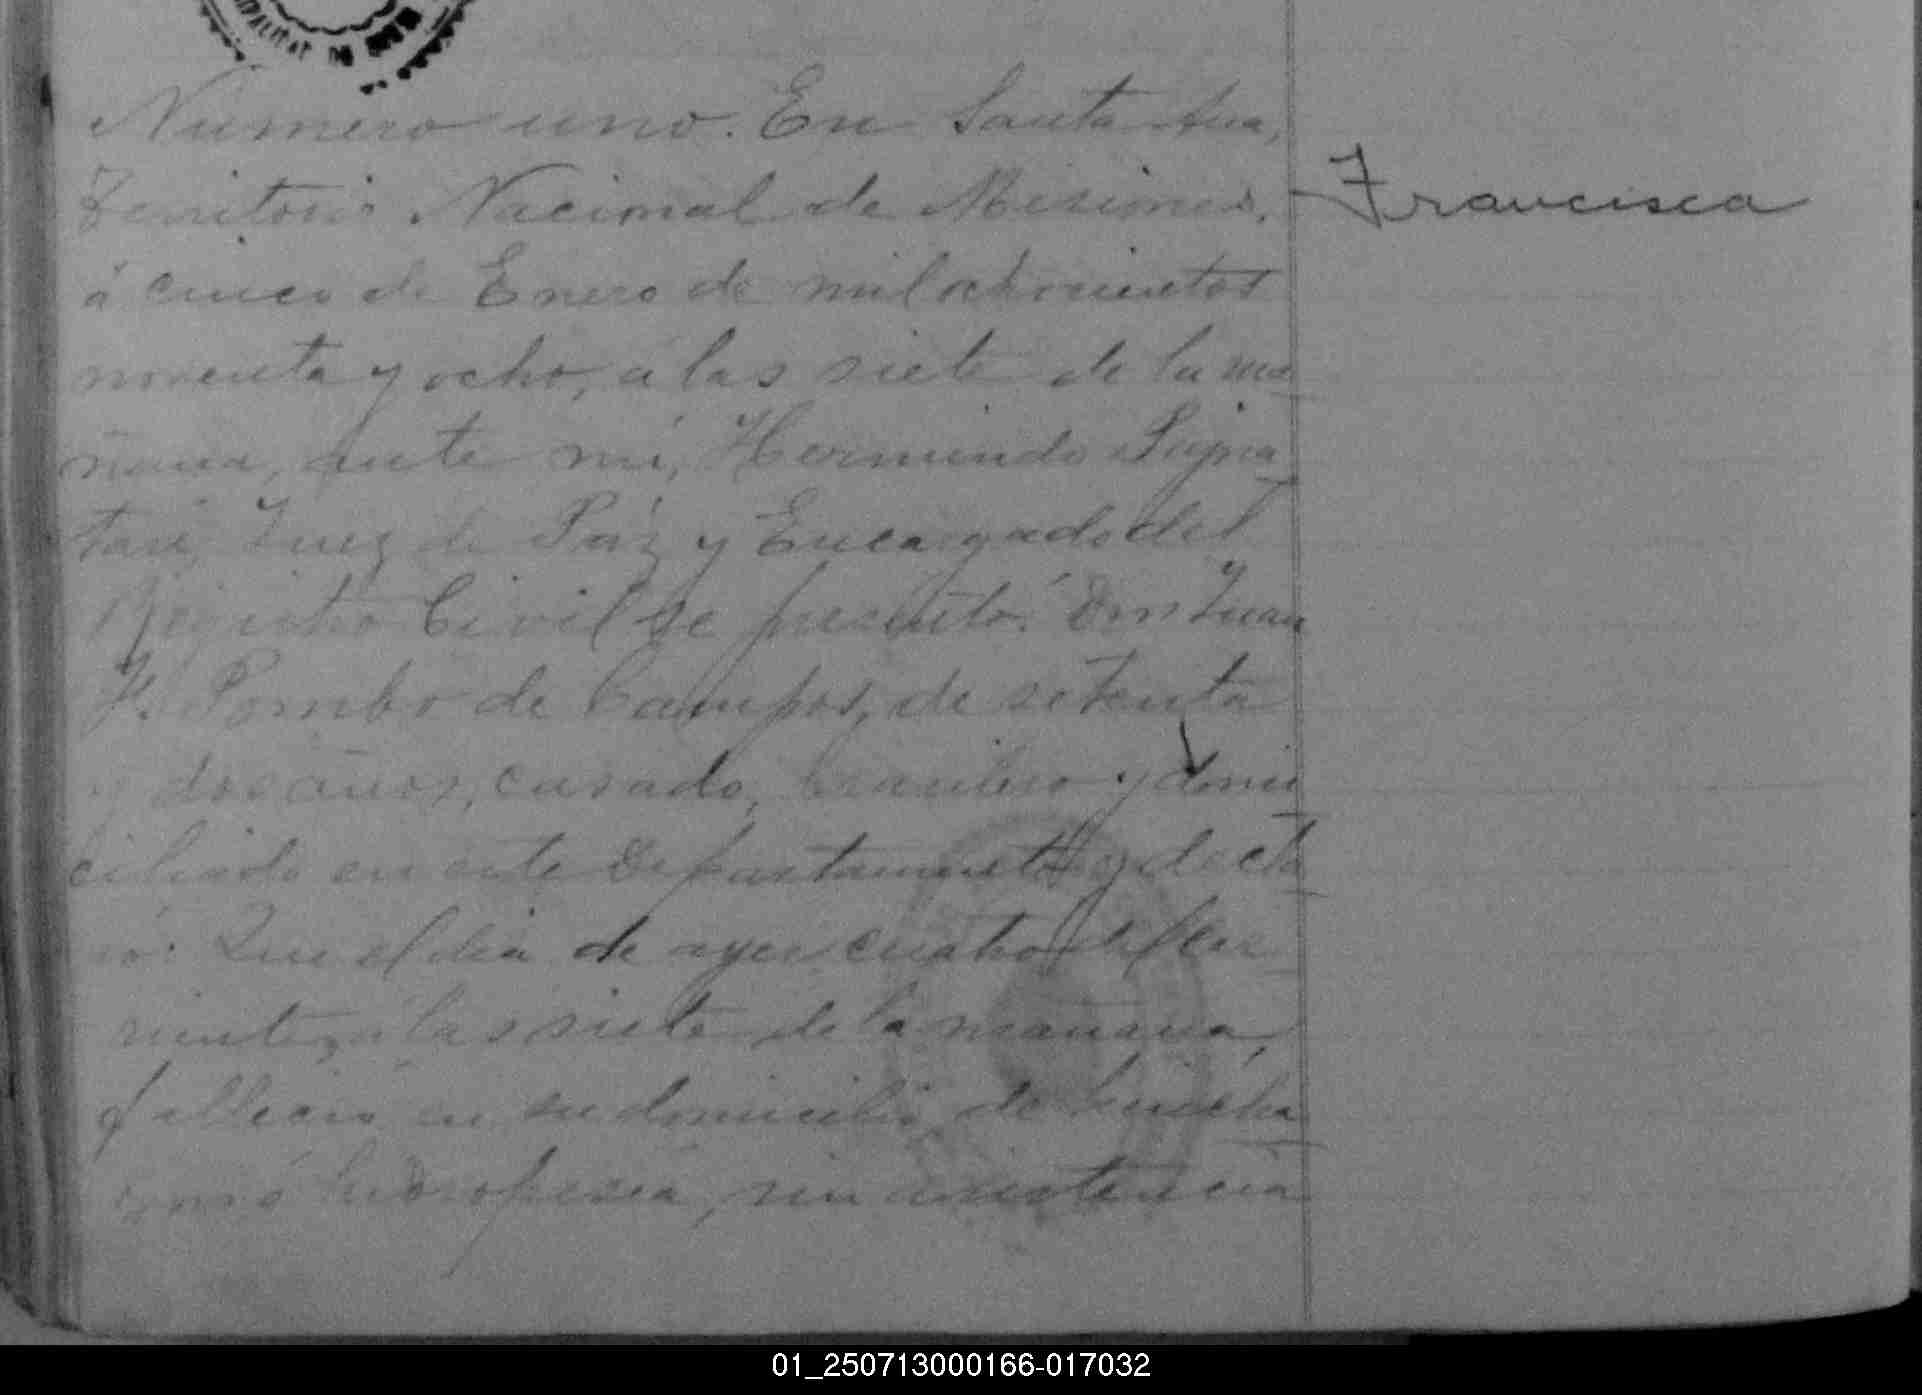 Número uno. En Santa Ana,
Territorio Nacional de Misiones,
á cinco de Enero de mil ochocientos
noventa y ocho, á las siete de la ma
ñana, ante mí, Hermindo Pigna
tari, Juez de Paz y Encargado del
Registro Civil se presentó: Don Juan
F. Pombo de Campos, de setenta
y dos años, casado, brasilero y domi
ciliado en este Departamento y decla
ró: Que el dia de ayer cuatro del cor
riente, a las siete de la mañana,
falleció en su domicilio, de hincha
zon ó hidropesia, sin asistencia
Francisca
01_250713000166-017032